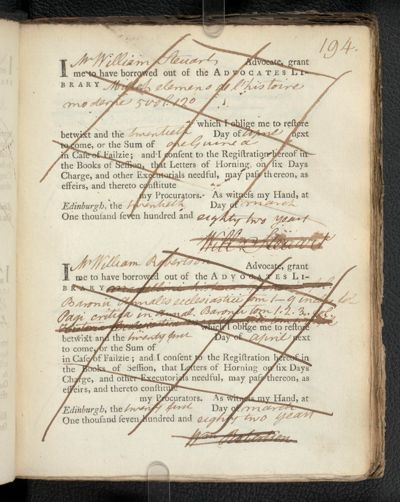 194.
I Mr William Steuart Advocate, grant
me to have borrowed out of the ADVOCATES LI-
BRARY Millot elemens de l'histoire
moderne 5 vol 12o
which I oblige me to restore
betwixt and the twentieth Day of april next
to come, or the Sum of one Guinea
in Case of Failzie; and I consent to the Registration hereof in
the Books of Session, that Letters of Horning on six Days
Charge, and other Executorials needful, may pass thereon, as
effeirs, and thereto constitute
my Procurators. As witness my Hand, at
Edinburgh, the twentieth Day of march
One thousand seven hundred and eighty two years
Will Steuart
I Mr William Robertson Advocate, grant
me to have borrowed out of the ADVOCATES LI-
BRARY
Baronii Annales ecclesiastici tom 1-9
Pagi critica in annal. Baronii tom 1. 2. 3.
which I oblige me to restore
betwixt and the twenty first Day of april next
to come, or the Sum of
in Case of Failzie; and I consent to the Registration hereof in
the Books of Session, that Letters of Horning on six Days
Charge, and other Executorials needful, may pass thereon, as
effeirs, and thereto constitute
my Procurators. As witness my Hand, at
Edinburgh, the twenty first Day of march
One thousand seven hundred and eighty two years
Wm Robertson